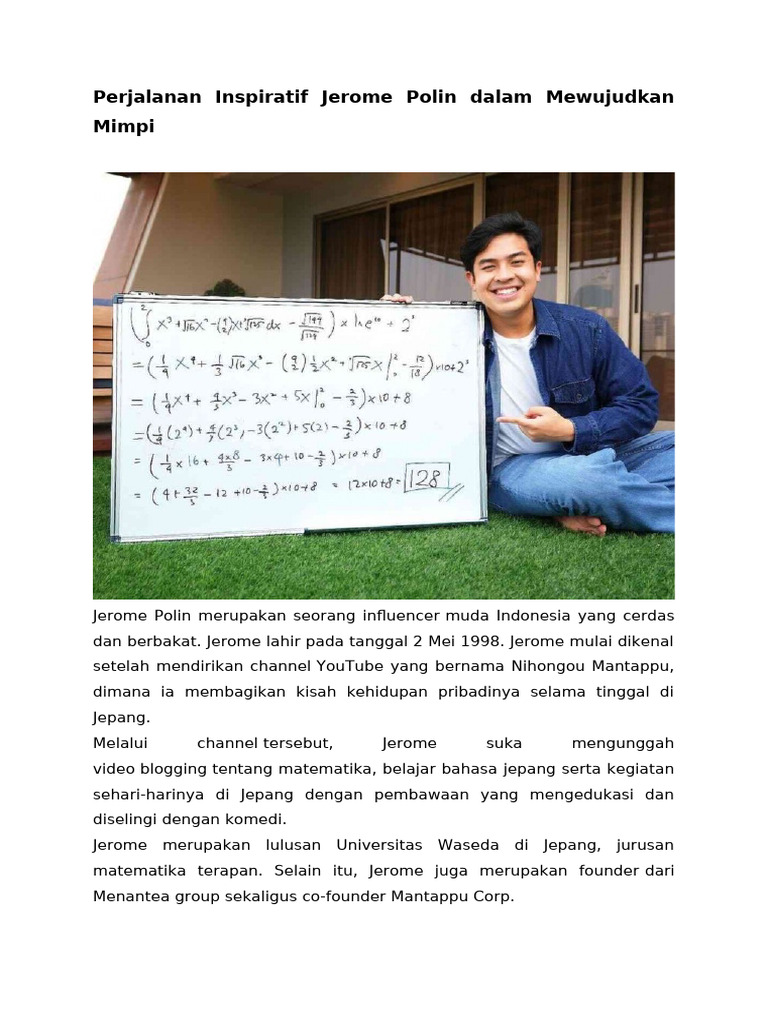 Perjalanan Inspiratif Jerome Polin dalam Mewujudkan
Mimpi
(∫₀² x³ + √16 x² - (9/2)x + ³√125 dx - √144/√324) × ln e¹⁰ + 2³
= (1/4 x⁴ + 1/3 √16 x³ - (9/2) 1/2 x² + ³√125 x |₀² - 12/18) × 10 + 2³
= (1/4 x⁴ + 4/3 x³ - 3x² + 5x |₀² - 2/3) × 10 + 8
= (1/4 (2⁴) + 4/3 (2³) - 3(2²) + 5(2) - 2/3) × 10 + 8
= (1/4 × 16 + 4×8/3 - 3×4 + 10 - 2/3) × 10 + 8
= (4 + 32/3 - 12 + 10 - 2/3) × 10 + 8 = 12×10+8 = 128
Jerome Polin merupakan seorang influencer muda Indonesia yang cerdas
dan berbakat. Jerome lahir pada tanggal 2 Mei 1998. Jerome mulai dikenal
setelah mendirikan channel YouTube yang bernama Nihongou Mantappu,
dimana ia membagikan kisah kehidupan pribadinya selama tinggal di
Jepang.
Melalui channel tersebut, Jerome suka mengunggah
video blogging tentang matematika, belajar bahasa jepang serta kegiatan
sehari-harinya di Jepang dengan pembawaan yang mengedukasi dan
diselingi dengan komedi.
Jerome merupakan lulusan Universitas Waseda di Jepang, jurusan
matematika terapan. Selain itu, Jerome juga merupakan founder dari
Menantea group sekaligus co-founder Mantappu Corp.